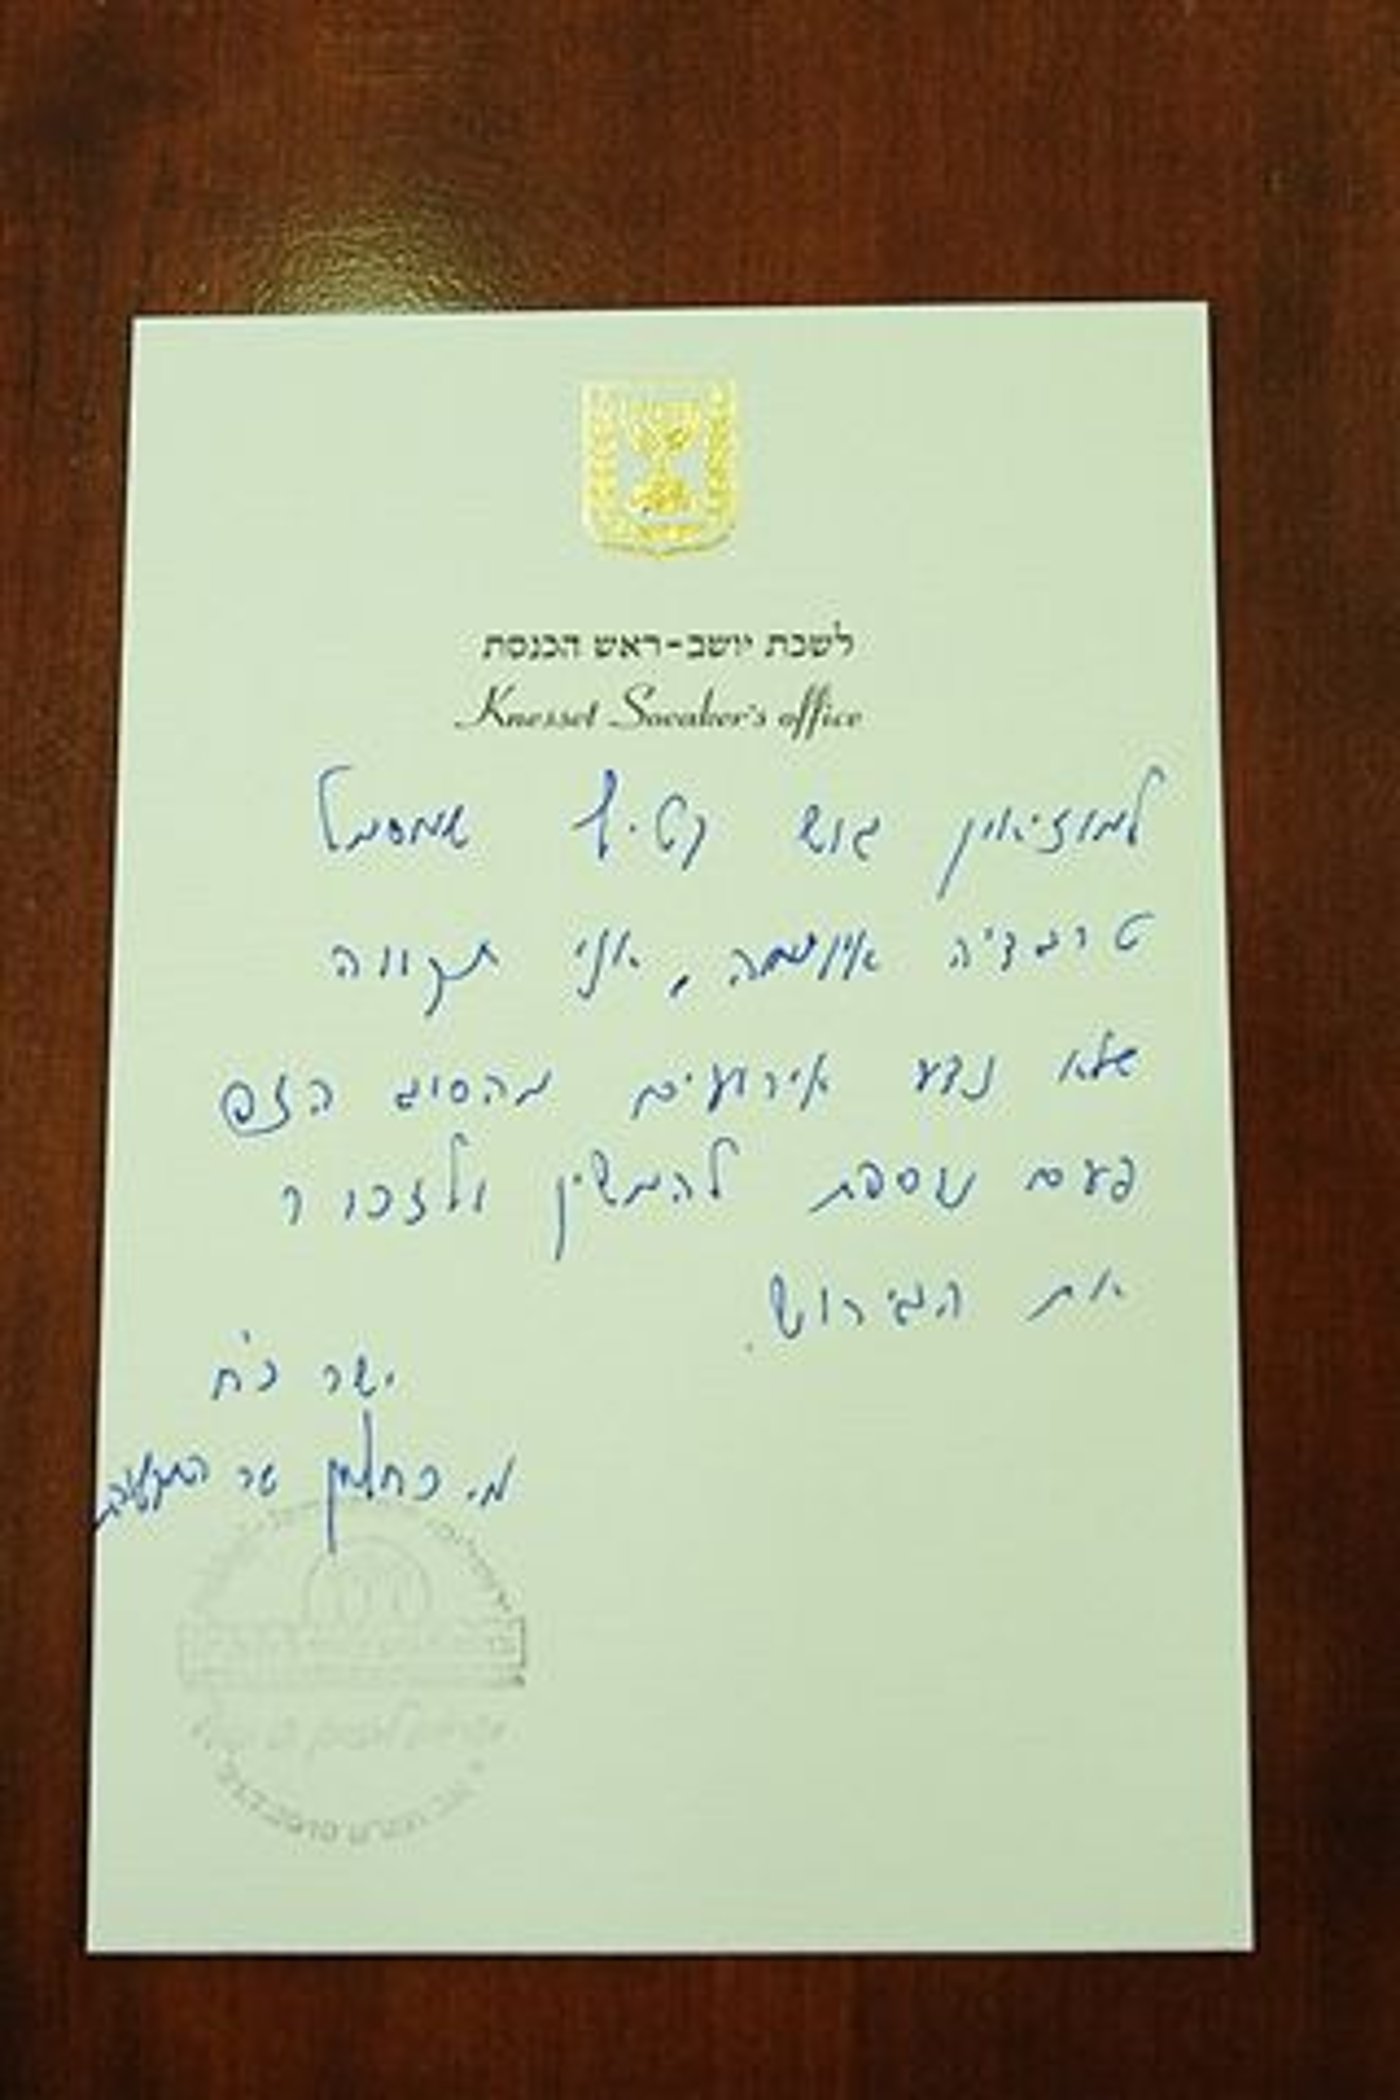 לשכת יושב-ראש הכנסת
Knesset Speaker's office
למוזיאון גוש קטיף שמסמל
טרגדיה איומה, אני תקווה
שלא נדע אירועים מהסוג הזה
פעם נוספת להמשיך ולזכור
את הגירוש.
ישר כ"ח
מ. כחלון שר התקשורת